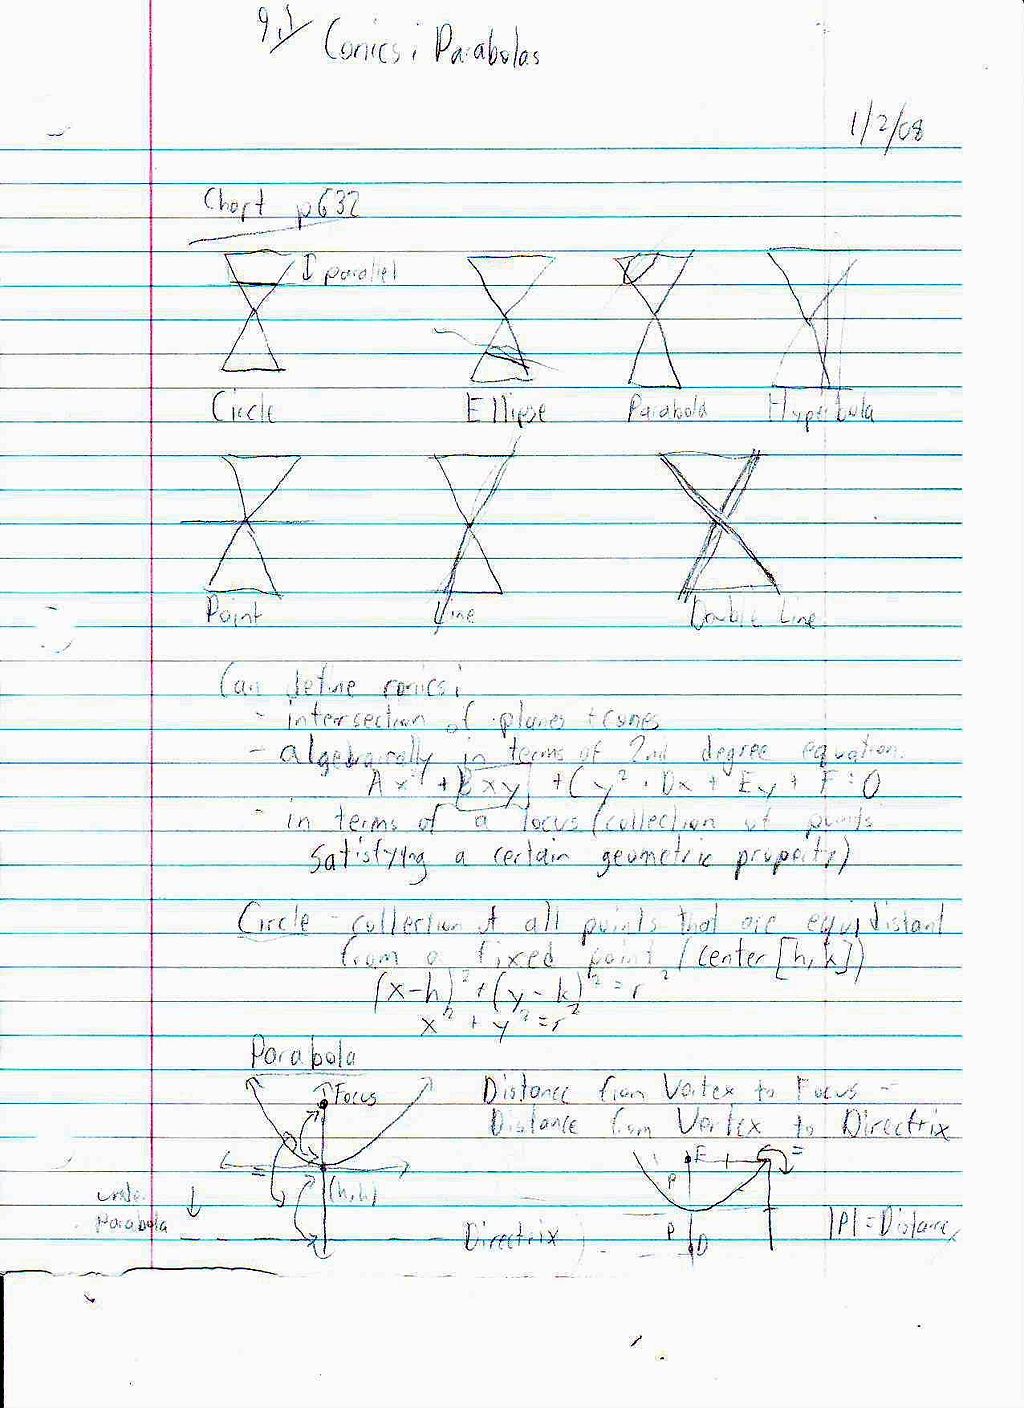 9.1 Conics: Parabolas
1/2/08
Chart p632
parallel
Circle Ellipse Parabola Hyperbola
Point Line Double Line
Can define conics:
- intersection of planes + cones
- algebraically in terms of 2nd degree equation.
Ax² + Bxy + Cy² + Dx + Ey + F = 0
- in terms of a locus (collection of points
satisfying a certain geometric property)
Circle - collection of all points that are equidistant
from a fixed point (center [h,k])
(x-h)² + (y-k)² = r²
x² + y² = r²
Parabola
Focus
Distance from Vertex to Focus =
Distance from Vertex to Directrix
F
=
=
P
(h,k)
Parabola
Directrix
P
D
|P| = Distance